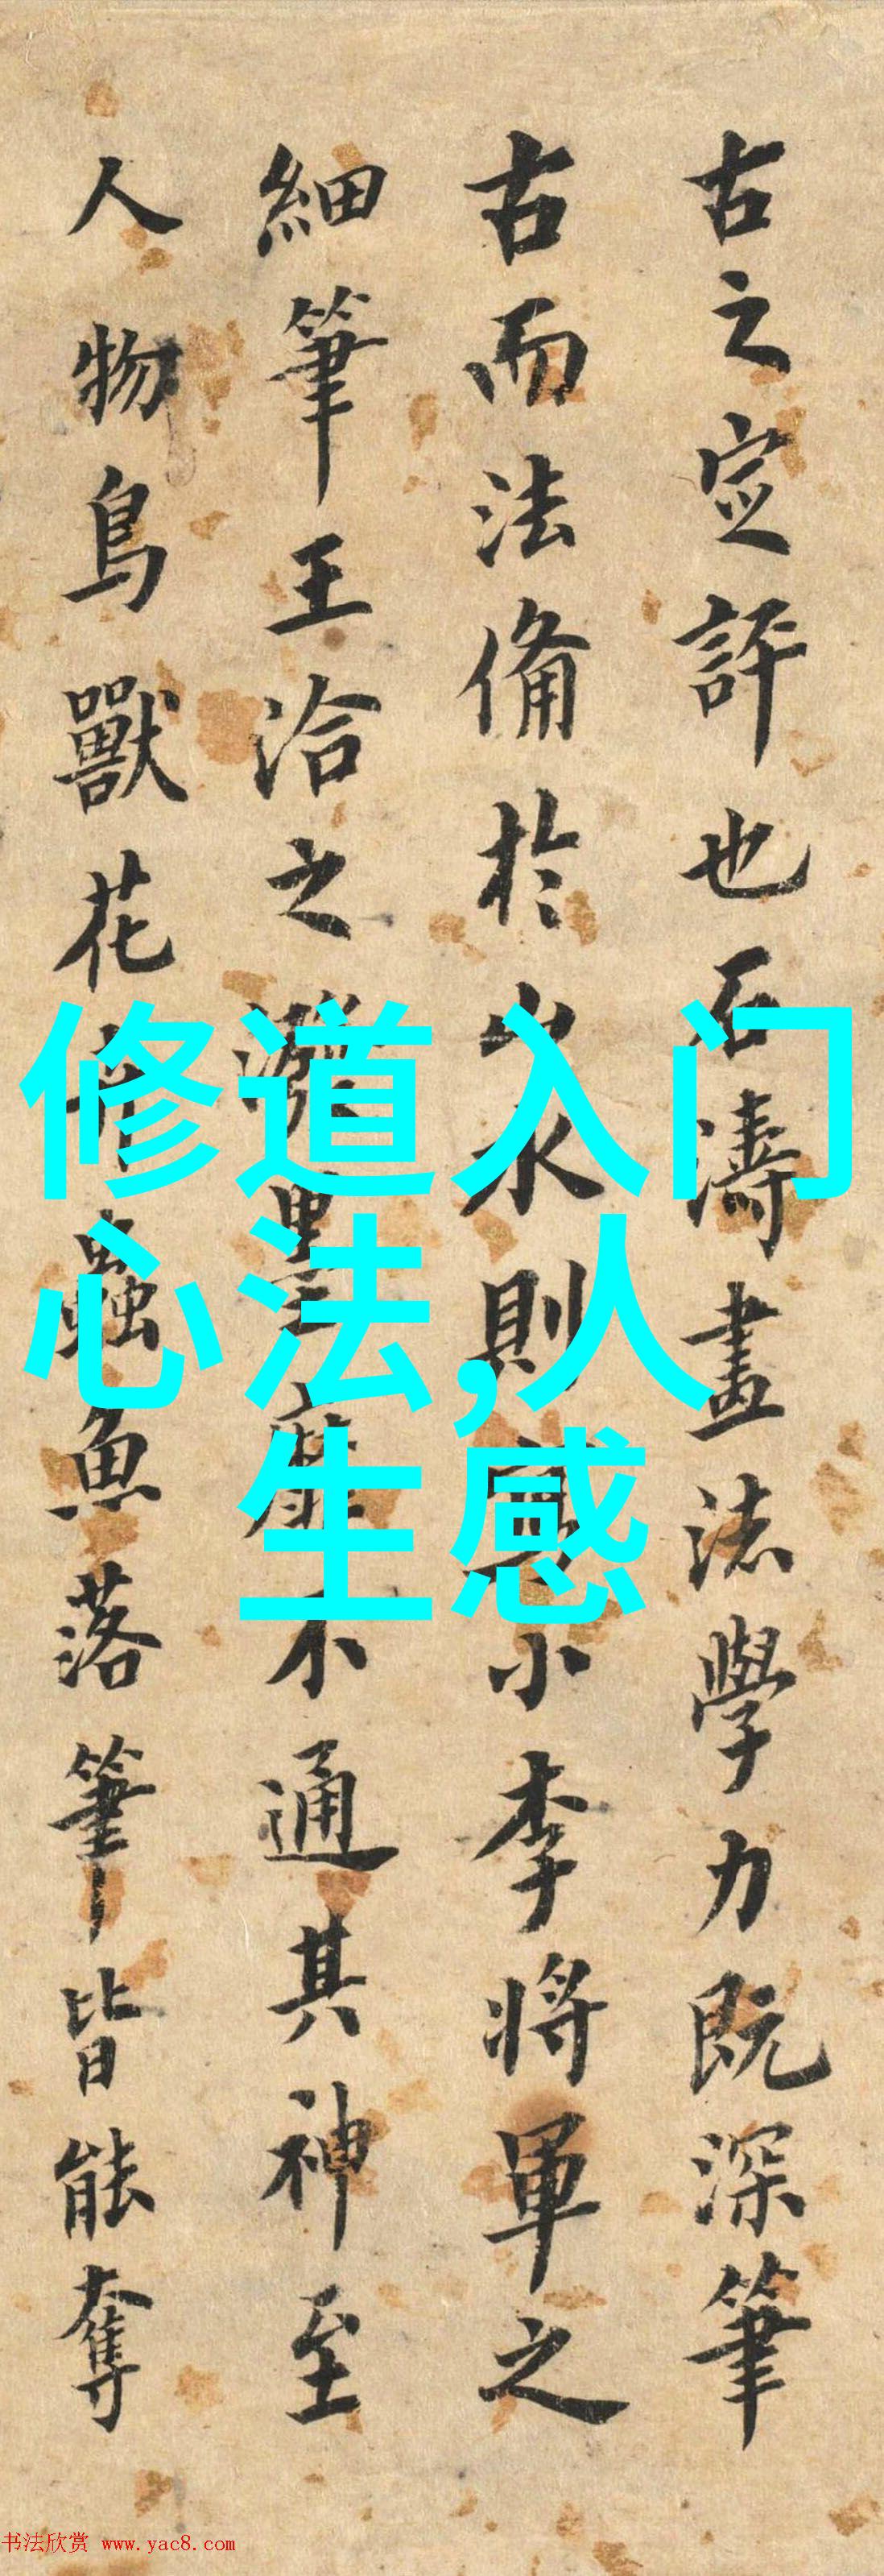 古之定評也石濤畫法學力既深筆
古而法備於山水則小李將軍之
細筆王洽之潑墨靡不通其神至
人物鳥獸花卉蟲魚落筆皆能奪
修道入门
心法,人
生感
书法欣赏 www.yac8.com